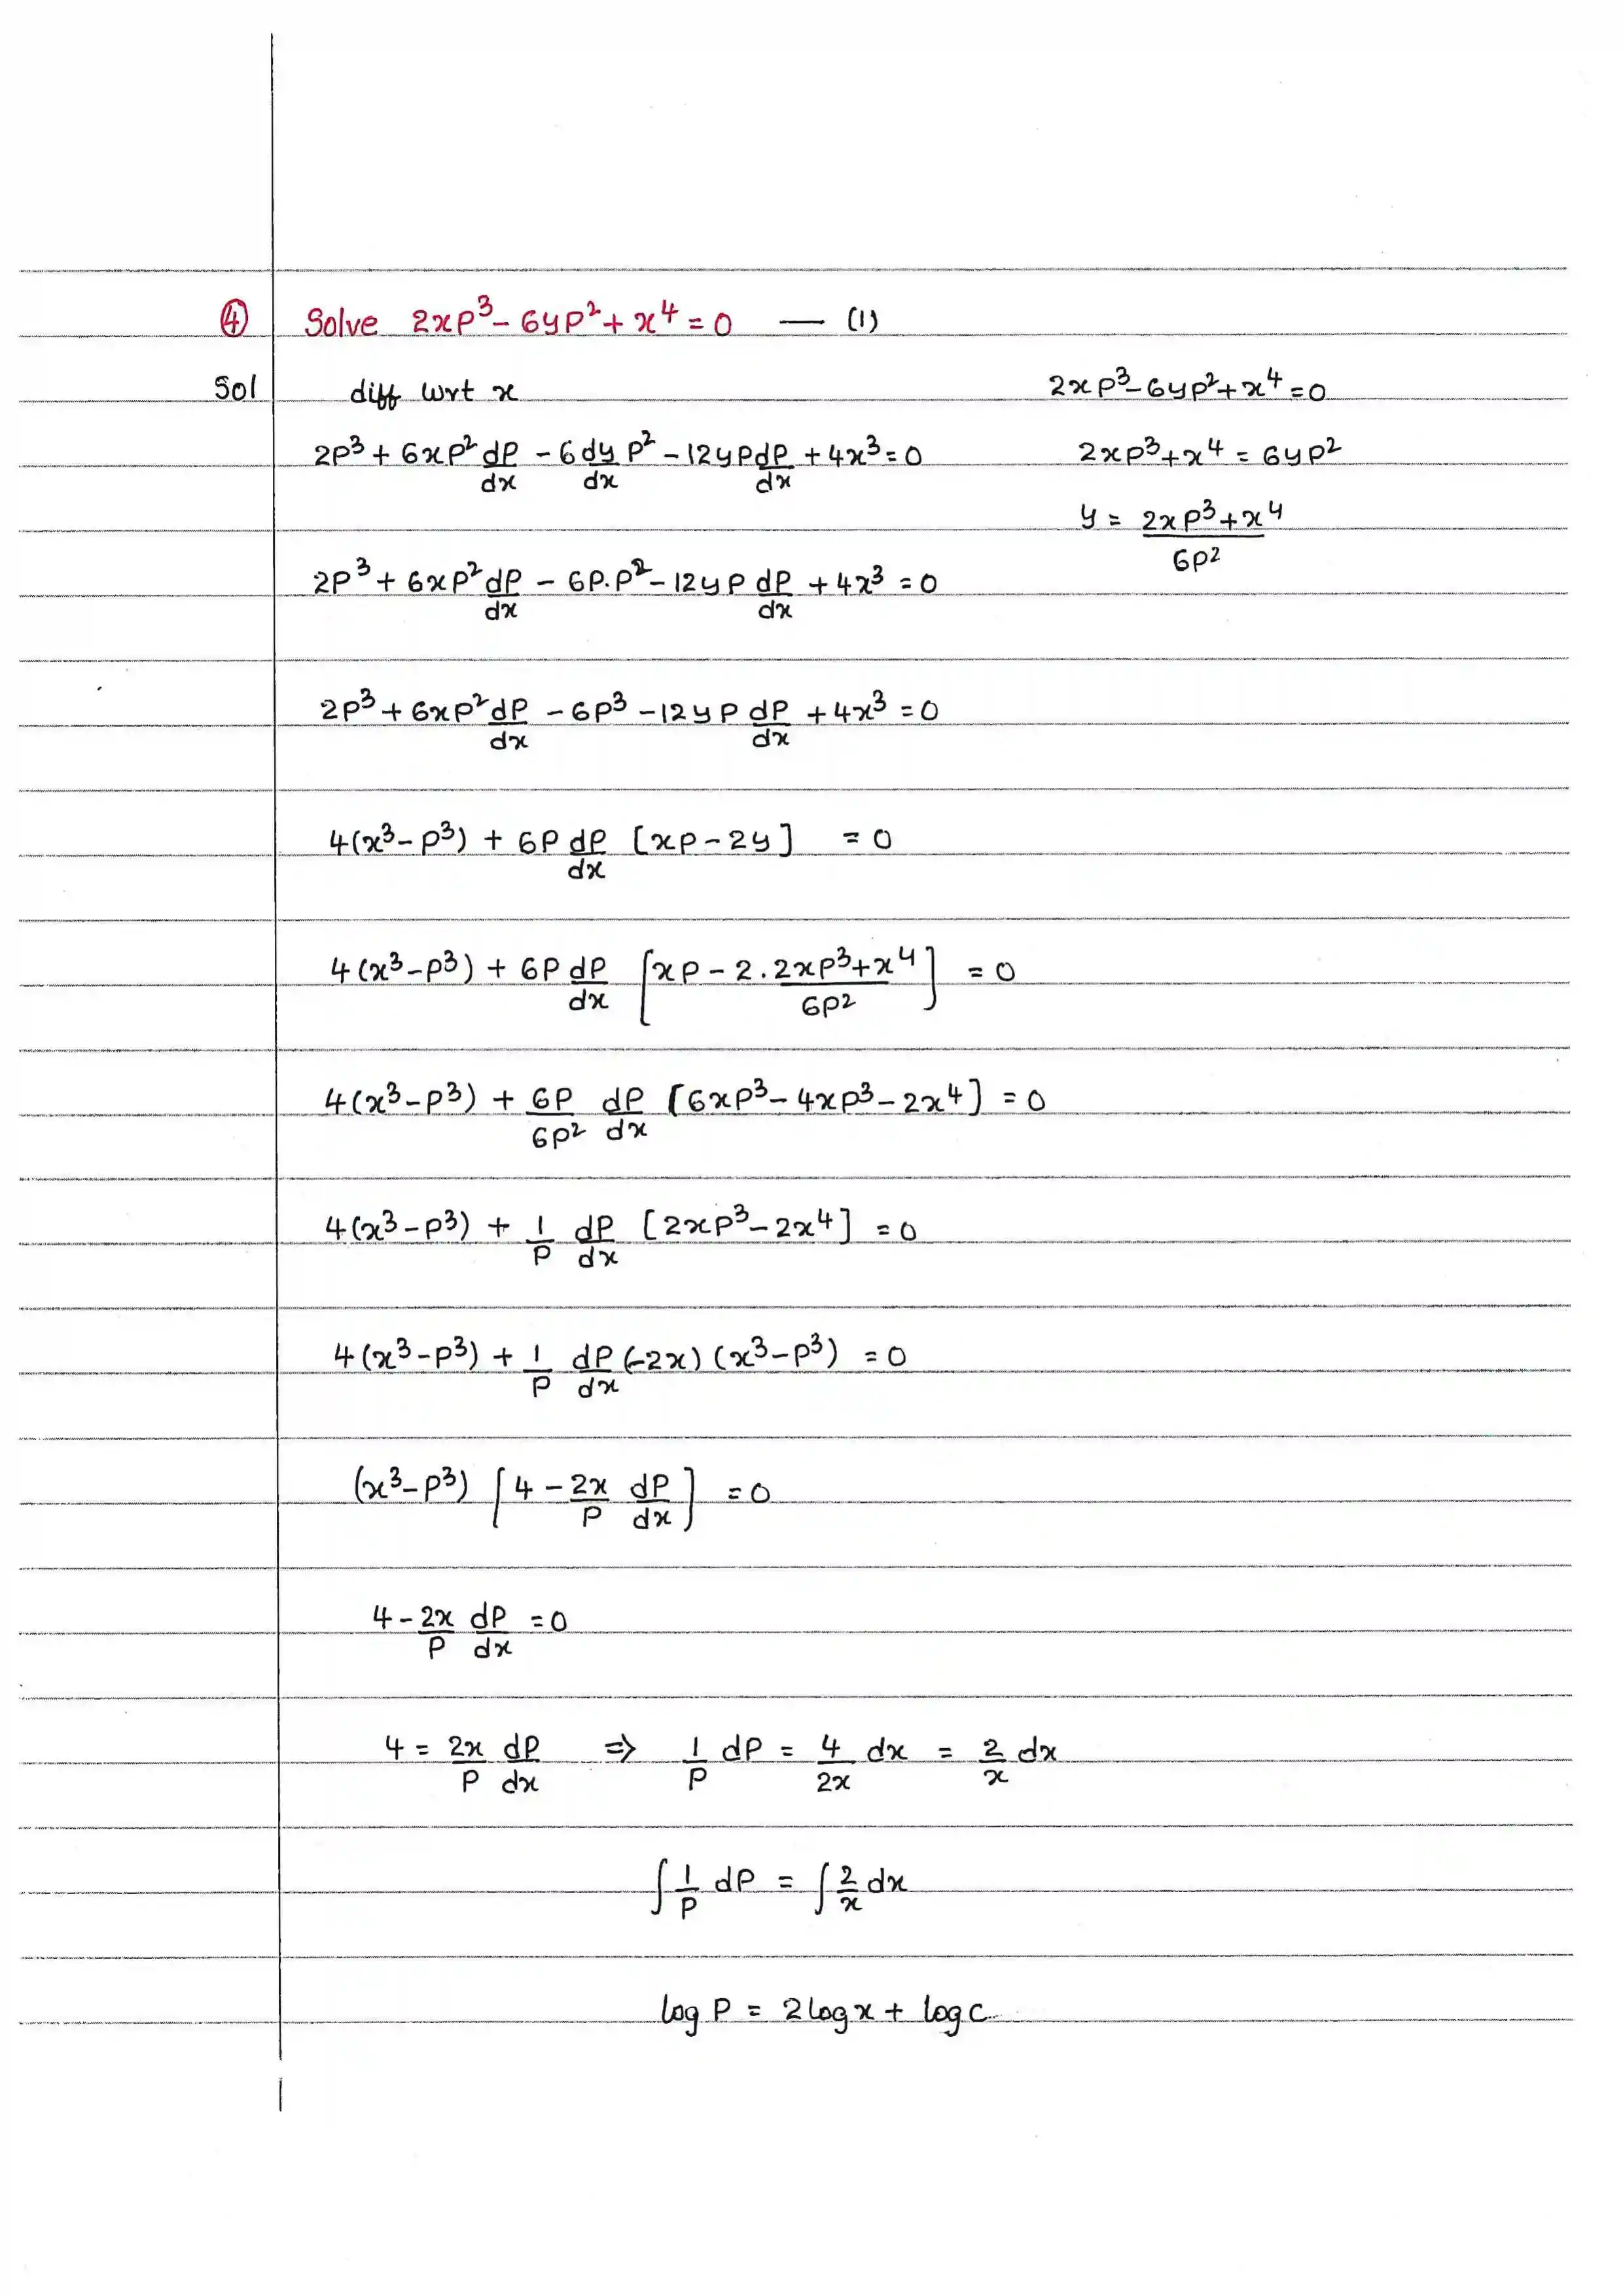 ④ Solve 2xp³ - 6yp² + x⁴ = 0 — (1)
Sol diff wrt x
2p³ + 6xp² dp/dx - 6 dy/dx p² - 12yp dp/dx + 4x³ = 0
2xp³ - 6yp² + x⁴ = 0
2xp³ + x⁴ = 6yp²
y = (2xp³ + x⁴)/6p²
2p³ + 6xp² dp/dx - 6p.p² - 12yp dp/dx + 4x³ = 0
2p³ + 6xp² dp/dx - 6p³ - 12yp dp/dx + 4x³ = 0
4(x³ - p³) + 6p dp/dx [xp - 2y] = 0
4(x³ - p³) + 6p dp/dx [xp - 2. (2xp³ + x⁴)/6p²] = 0
4(x³ - p³) + 6p/6p² dp/dx [6xp³ - 4xp³ - 2x⁴] = 0
4(x³ - p³) + 1/p dp/dx [2xp³ - 2x⁴] = 0
4(x³ - p³) + 1/p dp/dx (-2x) (x³ - p³) = 0
(x³ - p³) [4 - 2x/p dp/dx] = 0
4 - 2x/p dp/dx = 0
4 = 2x/p dp/dx ⇒ 1/p dp = 4/2x dx = 2/x dx
∫ 1/p dp = ∫ 2/x dx
log p = 2 log x + log c